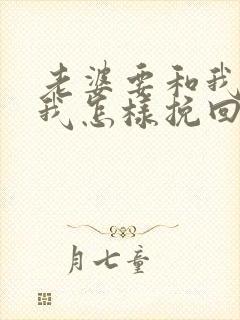 老婆要和我
我怎样挽回
月七童